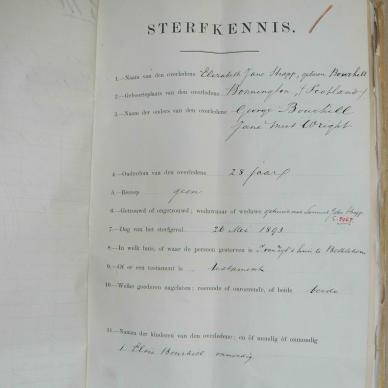 STERFKENNIS.
1.—Naam van den overledene Elizabeth Jane Strapp, geboren Bourhill
2.—Geboorteplaats van den overledene Bonnington, (Scotland)
3.—Naam der ouders van den overledene George Bourhill
Jane Wright
4.—Ouderdom van den overledene 28 jaar
5.—Beroep geen
6.—Getrouwd of ongetrouwd; weduwnaar of weduwe
7.—Dag van het sterfgeval 26 Mei 1893
8.—In welk huis, of waar de persoon gestorven is huis te Bethlehem
9.—Of er een testament is testament
10.—Welke goederen nagelaten; roerende of onroerende, of beide beide
11.—Namen der kinderen van den overledene; en of mondig of onmondig
1. Elsie Bourhill onmondig